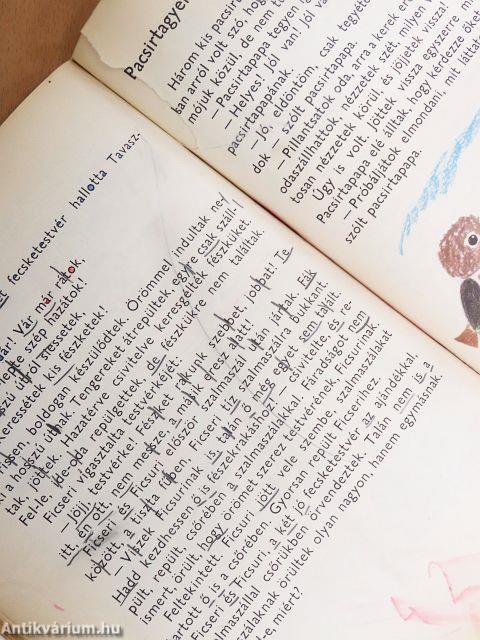 fecsketestvér hallotta Tavasz-
már! Vár már rátok,
szép hazátok!
útról siessetek,
Keressétek kis fészketek!
Frissen, boldogan készülődtek. Örömmel indultak ne-
ki a hosszú útnak. Tengereket átrepültek, egyre csak száll-
tak, jöttek. Hazatérve csivitelve keresgélték fészküket.
Fel-le, ide-oda repülgettek, de fészkükre nem találtak.
Ficseri vigasztalta testvérkéjét:
– Jöjj testvérke! Fészket rakunk szebbet, jobbat! Te
itt, én ott, nem messze, a másik eresz alatt!
Ficseri és Ficsuri először szalmaszál után jártak. Fák
között, a tiszta réten, Ficseri tíz szalmaszálra bukkant.
– Viszek Ficsurinak is, talán ő még egyet sem talált.
Hadd kezdhessen ő is fészekrakáshoz – csivitelte, és re-
pült, repült, csőrében a szalmaszálakkal. Fáradságot nem
ismert, örült, hogy örömet szerez testvérének, Ficsurinak.
Feltekintett. Ficsuri jött vele szembe, szalmaszálakat
tartott ő is a csőrében. Gyorsan repült Ficserihez.
Ficseri és Ficsuri, a két jó fecsketestvér az ajándékkal,
szalmaszállal csőrükben örvendeztek. Talán nem is a
szálaknak örültek olyan nagyon, hanem egymásnak.
miért?
Pacsirtagyer
Három kis pacsirt
ban arról volt szó, hogy
mójuk közül, de nem t
– Pacsirtapapa tegyen i
– Helyes! Jól van! Jól v
pacsirtapapának.
– Jó, eldöntöm, csak tegyéte
dok – szólt pacsirtapapa.
– Pillantsatok oda, arra a kerek er
odaszállhattok, nézzetek szét, milyen
tosan nézzetek körül és jöjjetek vissza!
Úgy is volt, jöttek vissza egyszerre mi
Pacsirtapapa elé álltak, hogy kérdezze őke
– Próbáljátok elmondani, mit láttat
szólt pacsirtapapa.
Antikvárium.hu